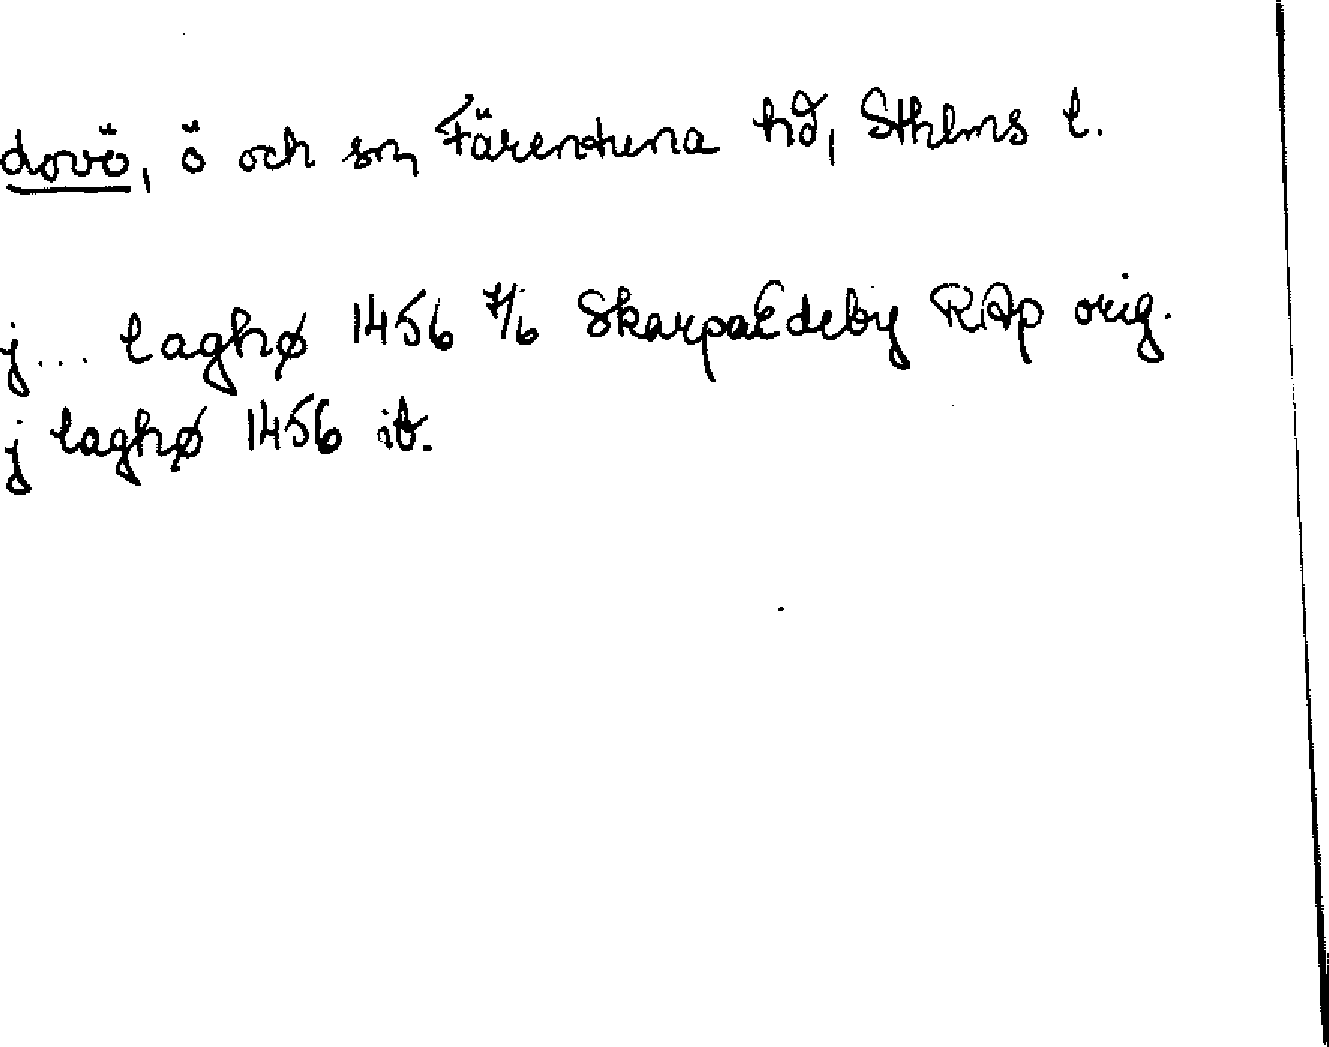 Lovö, ö och sn, Färentuna hd, Sthlms l.
j... laghø 1456 7/6 Skarpaldeby RAp orig.
j laghø 1456 ib.